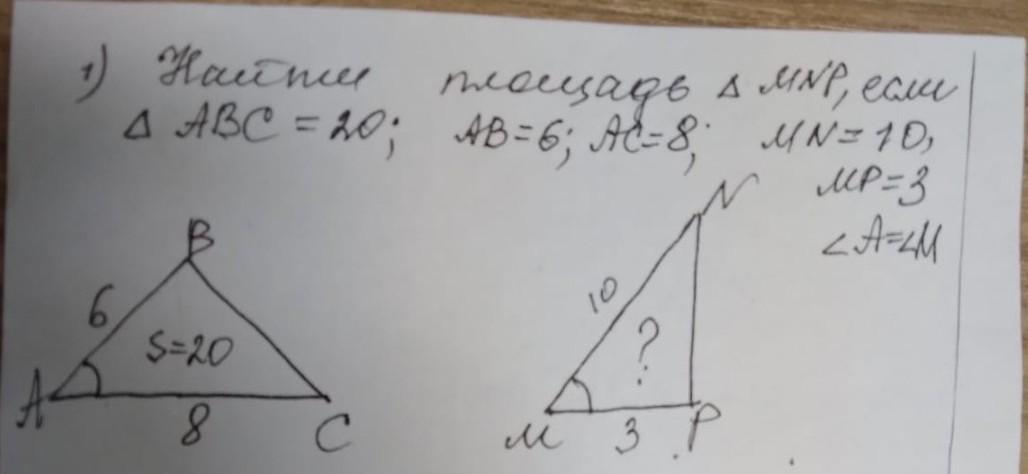 1) Найти площадь Δ MNP, если
Δ ABC = 20; AB=6; AC=8; MN=10,
MP=3
∠A=∠M
B
6
S=20
A
8
C
N
10
?
M
3
P